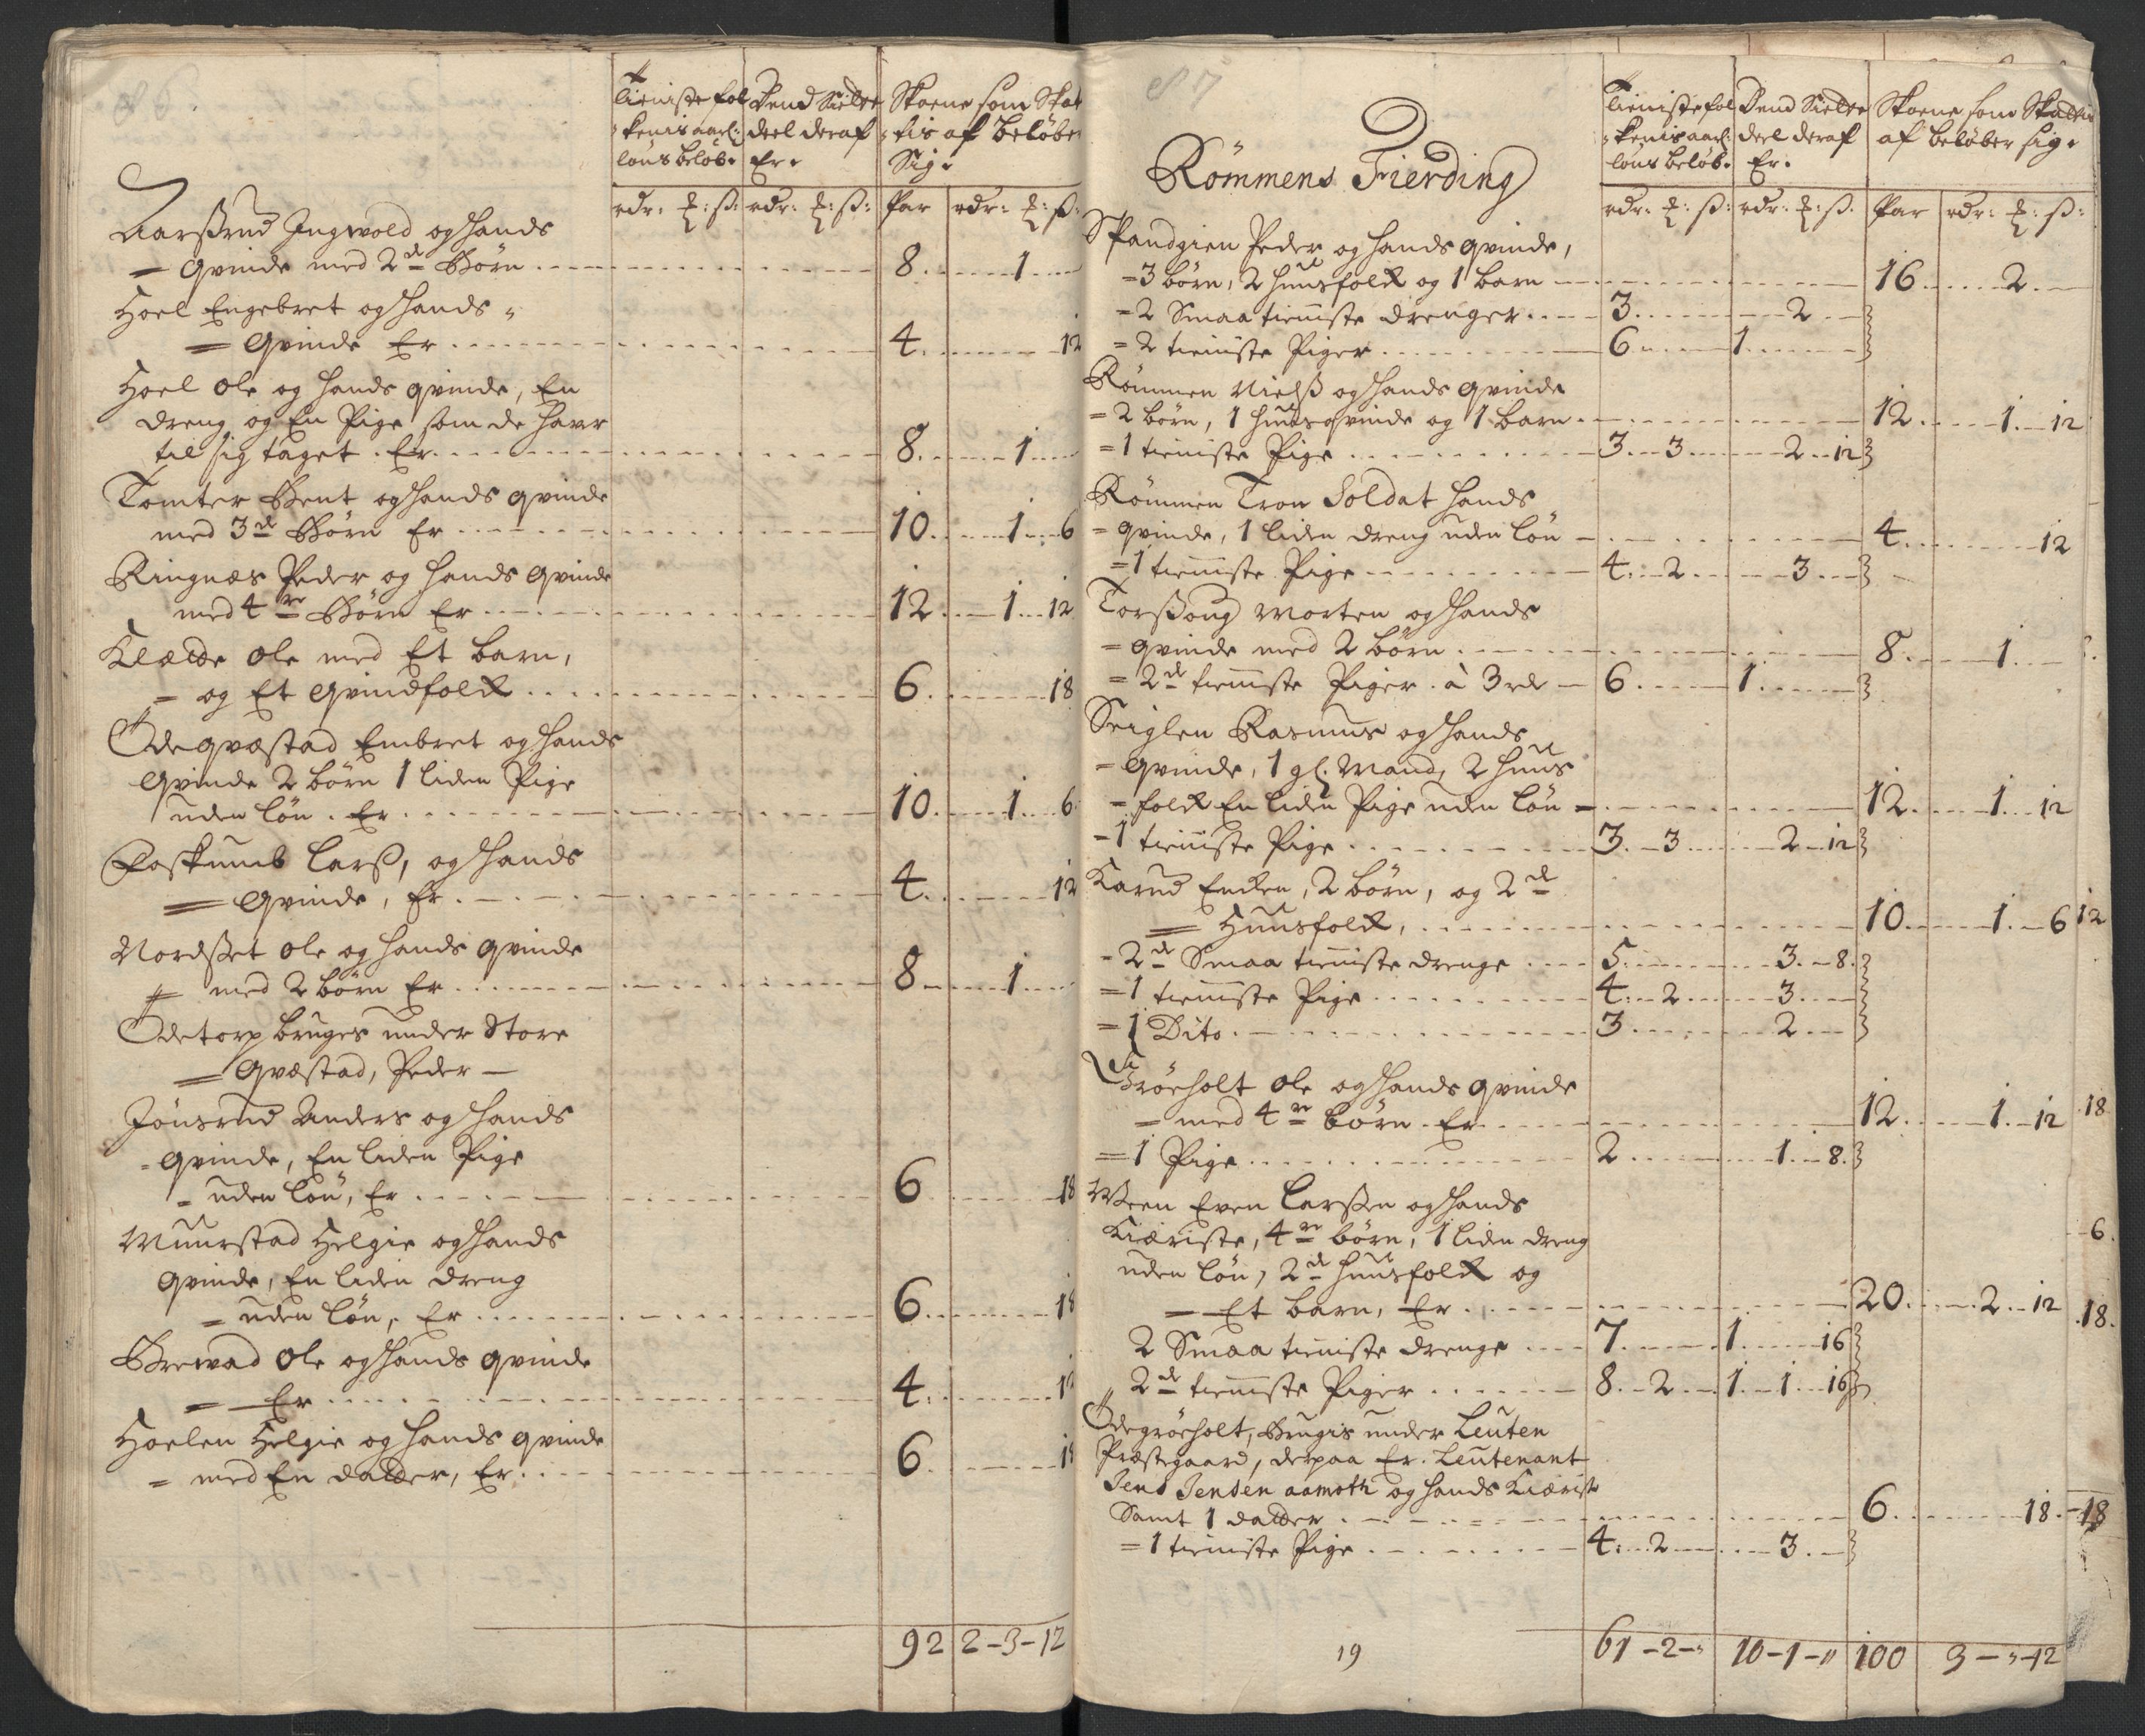 Tieniste fol
kenis aarl:
löns beløb.
Dend Siette
deel deraf
Er.
Skoene som Skat
tis af beløber
Sig.
rdr: ꝛ: ß: rdr: ꝛ: ß: Par rdr: ꝛ: ß:
Aarßrud Ingwold og hands
= Qvinde med 2de Börn 8 1
Hoel Engebret og hands
= Qvinde Er 4 12
Hoel Ole og hands qvinde, En
dreng og En Pige som de hawr
til sig taget. Er 8 1
Tomter Bent og hands qvinde
med 3de Börn Er 10 1 6
Ringnæs Peder og hands Qvinde
med 4re Börn Er 12 1 12
Klædde Ole med Et barn,
= og Et Qvindfolk 6 18
Ödeqvæstad Embret og hands
Qvinde 2 börn 1 liden Pige
uden lön. Er 10 1 6
Foskumb Larß, og hands
= Qvinde, Er 4 12
Nordßet Ole og hands Qvinde
med 2 börn Er 8 1
Ödetorp bruges under Store
= Qvæstad, Peder —
Jönsrud Anders og hands
Qvinde, En liden Pige
uden lön, Er 6 18
Muurstad Helgie og hands
Qvinde, En liden dreng
= uden lön, Er 6 18
Brewad Ole og hands qvinde
= Er 4 12
Hoelen Helgie og hands qvinde
= med En datter, Er 6 18
92 2-3-12
87
Römmens Fierding
Tieniste fol
kenis aarl:
löns beløb.
Dend Siette
deel deraf
Er.
Skoene som Skattis
af beløber sig.
rdr: ꝛ: ß: rdr: ꝛ: ß. Par rdr: ꝛ: ß:
Spandgien Peder og hands qvinde,
= 3 börn, 2 huusfolk og 1 barn 16 2
= 2 Smaa tieniste drenger 3 2
= 2 tieniste Piger 6 1
Römmen Nielß og hands qvinde
= 2 börn, 1 huusqvinde og 1 barn 12 1 12
= 1 tieniste Pige 3 3 2 12
Römmen Tron Soldat hands
= qvinde, 1 liden dreng uden lön 4 12
= 1 tieniste Pige 4 2 3
Torßoug Morten og hands
= qvinde med 2 börn 8 1
= 2de tieniste Piger à 3 rdr 6 1
Seiglen Rasmus og hands
= Qvinde, 1 gl. Mand, 2 huus
= folk En liden Pige uden lön 12 1 12
= 1 tieniste Pige 3 3 2 12
Karud Enken, 2 börn, og 2de
= Huusfolk, 10 1 6
= 2de Smaa tieniste drenge 5 3 8
= 1 tieniste Pige 4 2 3
= 1 Dito 3 2
Gröeholt Ole og hands qvinde
= med 4re börn Er 12 1 12
= 1 Pige 2 1 8
Ween Even Larßen og hands
Kiæriste, 4re börn, 1 liden dreng
uden lön, 2de huusfolk og
= Et barn, Er 20 2 12
2 Smaa tieniste drenge 7 1 16
2de tieniste Piger 8 2 1 1 16
Ödegröeholt, Brugis under Leuten
Præstegaard, derpaa Er. Leutenant
Jens Jensen aamoth og hands Kiæriste
Samt 1 datter 6 18
= 1 tieniste Pige 4 2 3
19
61-2-" 10-1-" 100 3-"-12
12
18
6
18
18